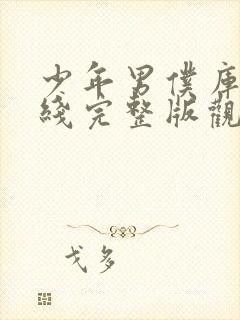 少年男僕庫
綫完整版觀
戈多